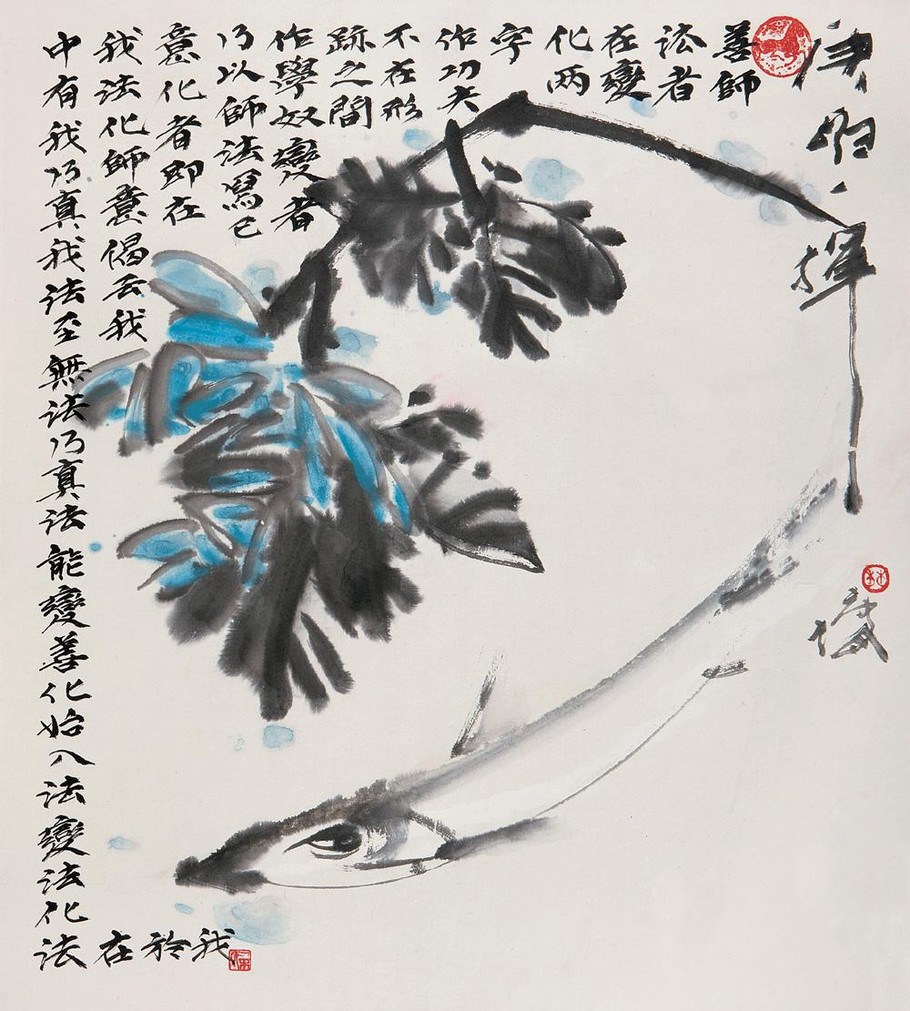 明、輝
林
墉
善師
法者
在變
化两
字
作功夫
不在形
跡之間
作學奴變者
乃以師法爲己
意化者即在
我法化師意偈云我
中有我乃真我法至無法乃真法能變善化始入法變法化法
在於我